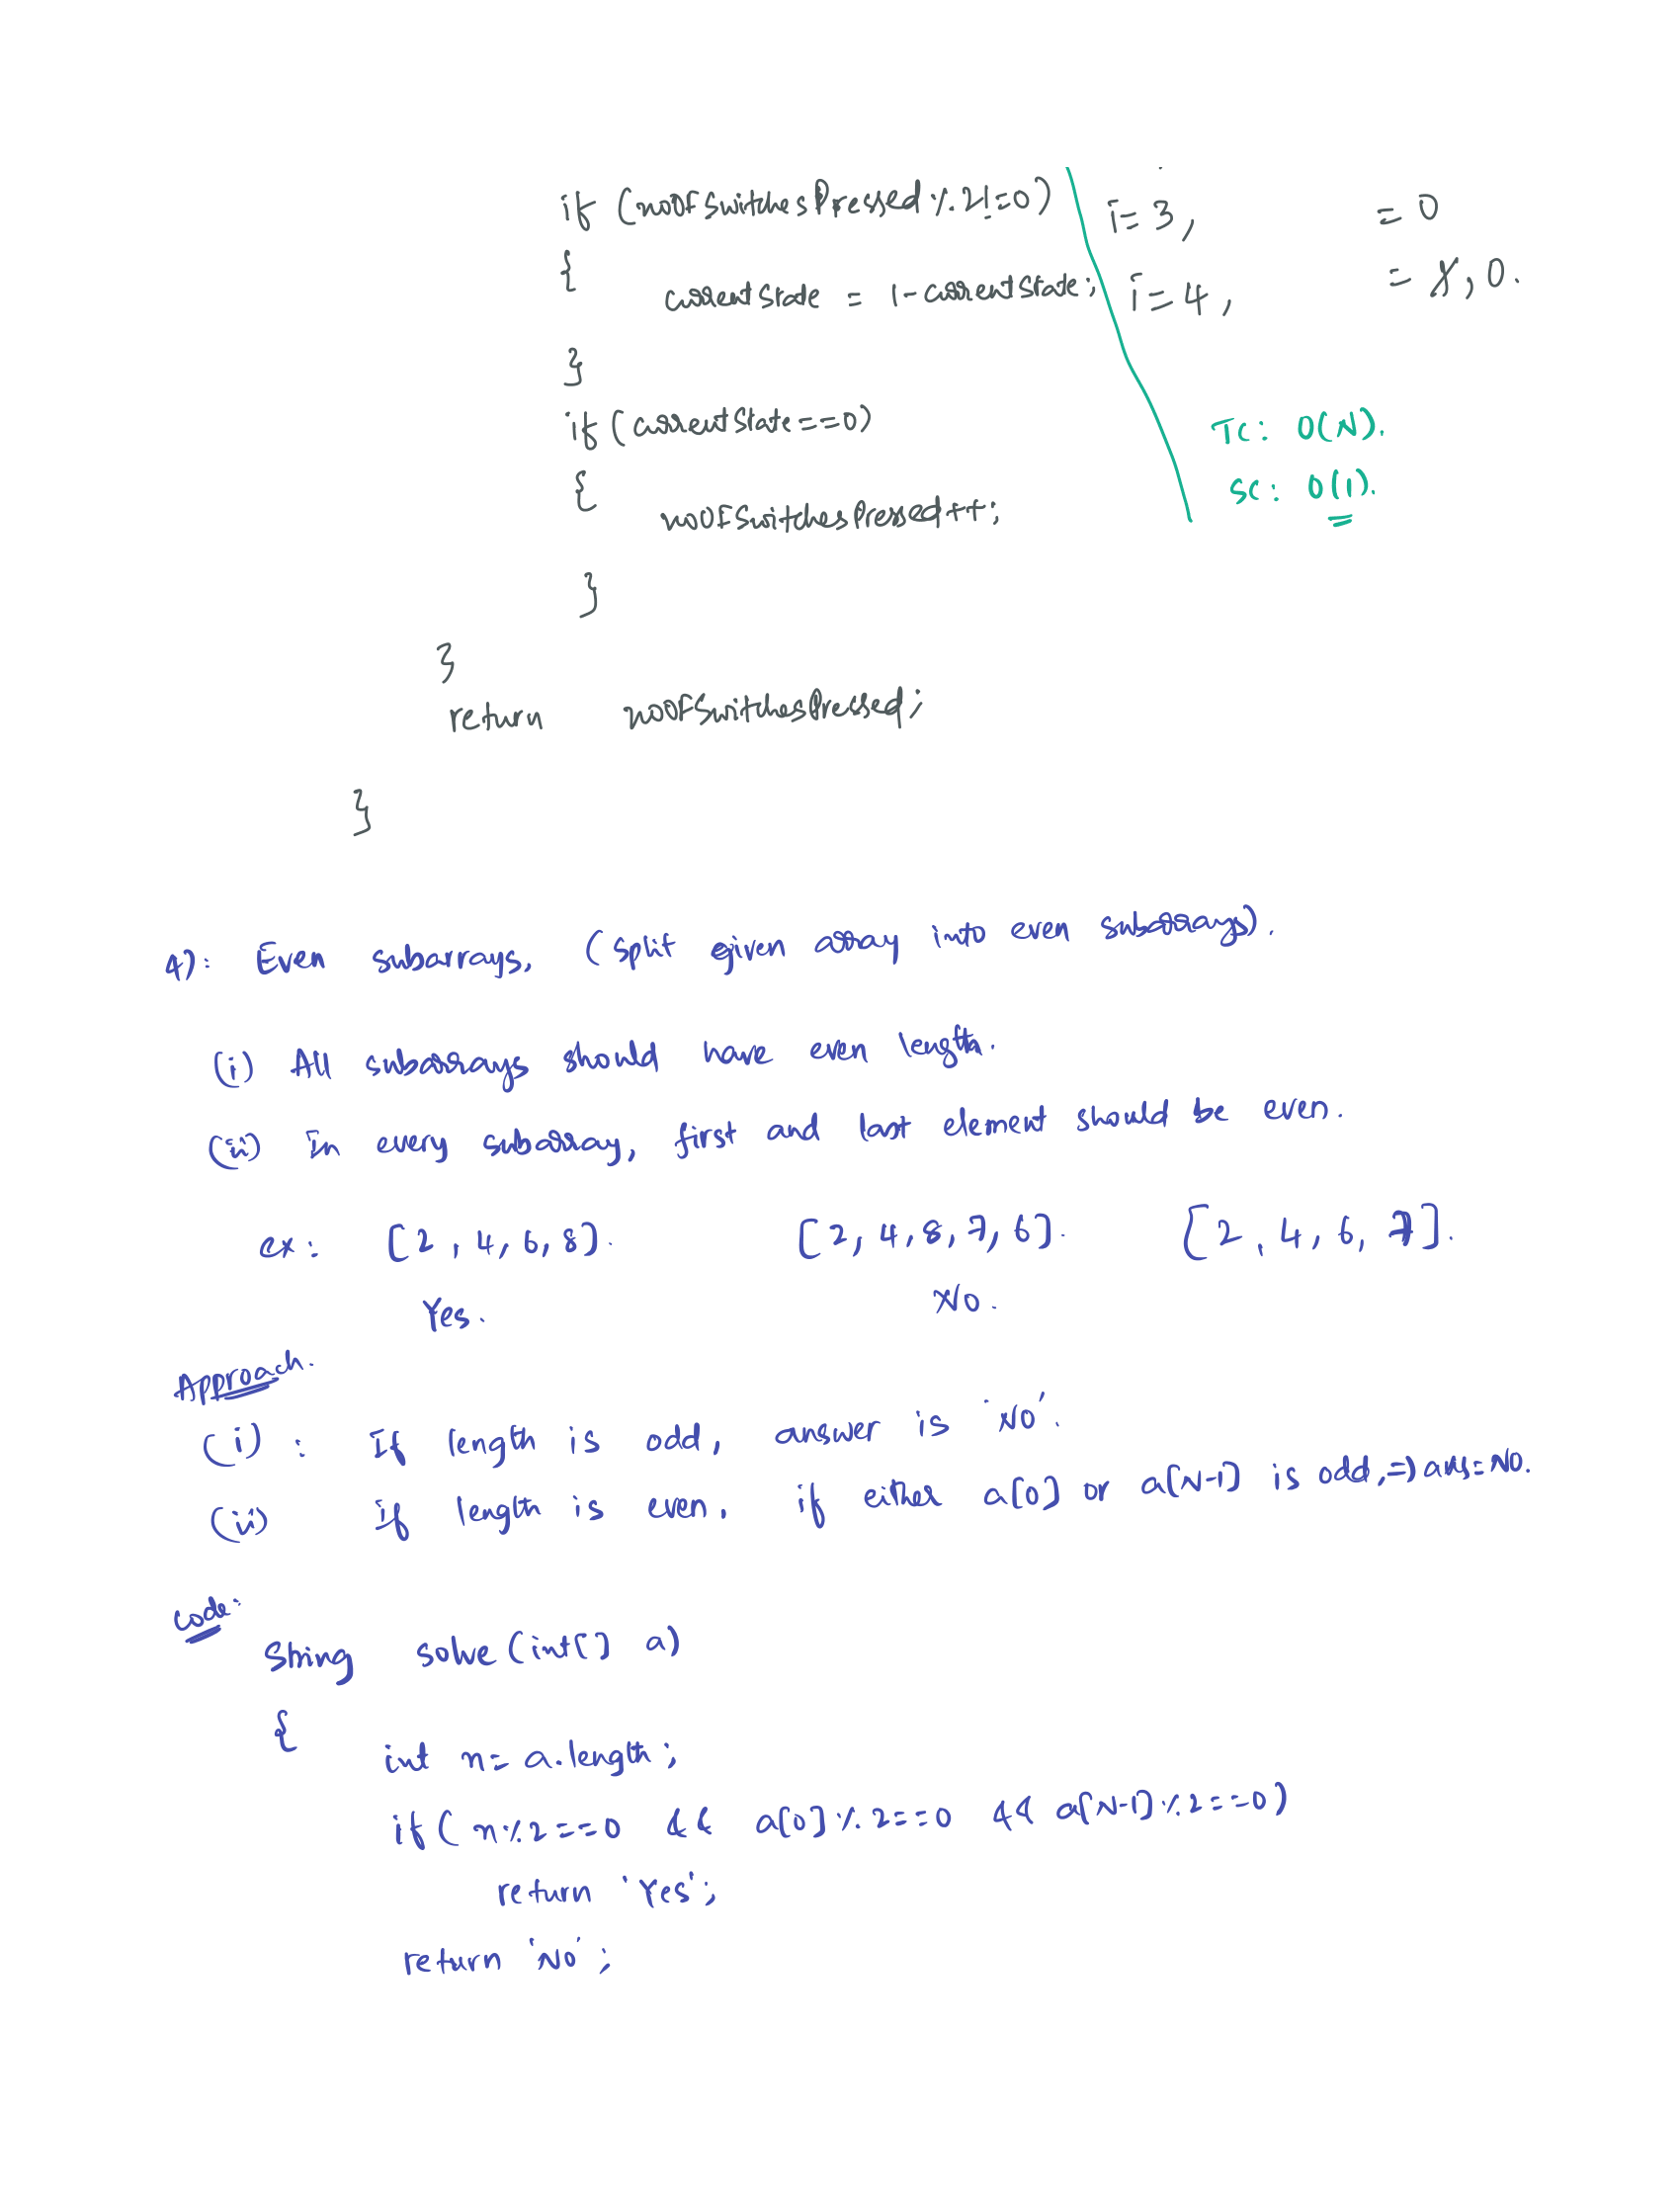 if (noOfSwitchesPressed%2!=0)
{
currentState = 1-currentState;
}
if (currentState==0)
{
noOfSwitchesPressed++;
}
}
return noOfSwitchesPressed;
}
i=3, =0
i=4, =1,0.
TC: O(N).
SC: O(1).
4): Even subarrays, (split given array into even subarrays).
(i) All subarrays should have even length.
(ii) In every subarray, first and last element should be even.
ex: [2,4,6,8]. [2,4,8,7,6]. [2,4,6,7].
Yes. No.
Approach.
(i): If length is odd, answer is 'No'.
(ii) if length is even, if either a[0] or a[N-1] is odd,=) ans=No.
Code:
String solve(int[] a)
{
int n= a.length;
if( n%2==0 && a[0]%2==0 && a[N-1]%2==0)
return 'Yes';
return 'No';